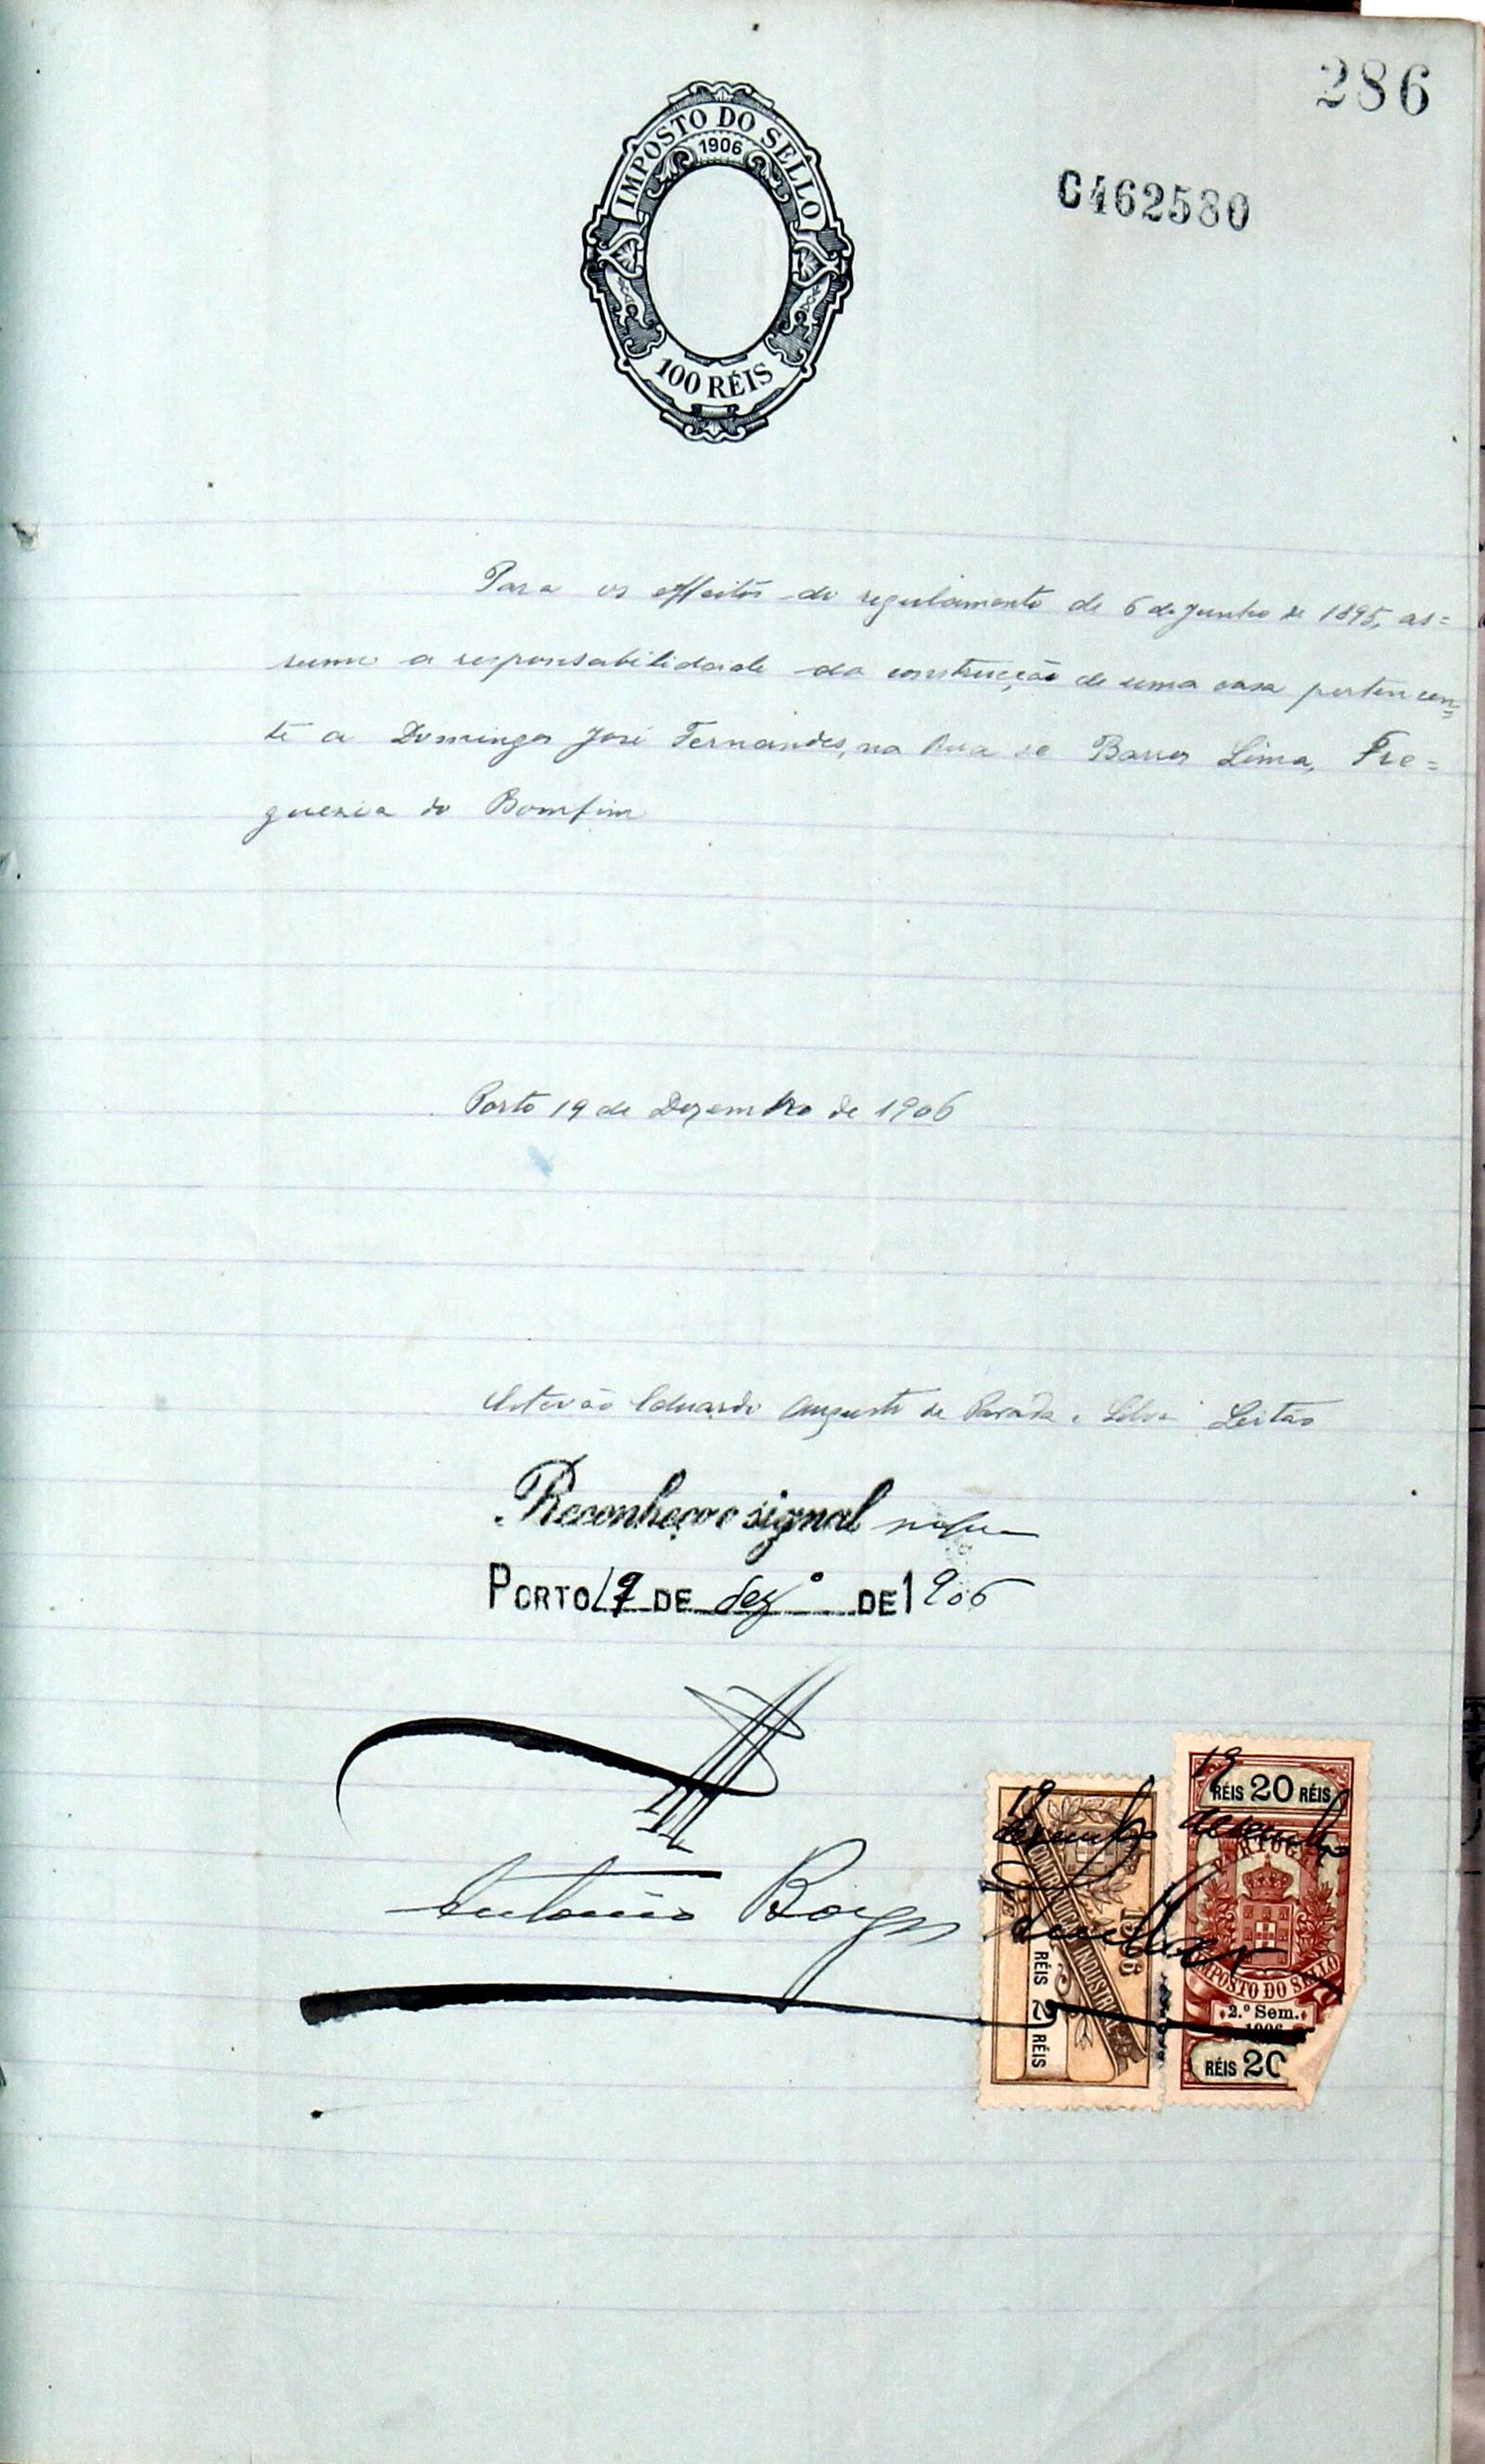 286
IMPOSTO DO SELLO
1906
C462580
100 RÉIS
Para os effeitos do regulamento de 6 de Junho de 1895, as=
sumo a responsabilidade da construcção de uma casa pertencen=
te a Domingos José Fernandes, na Rua de Barros Lima, Fre=
guezia do Bomfim
Porto 19 de Dezembro de 1906
Estevão Eduardo Augusto de Parada e Silva Leitão
Reconheço o signal
PORTO 19 DE dezº DE 1906
RÉIS 20 RÉIS
19
dezembro
PORTUGAL
IMPOSTO DO SELLO
2.º Sem.
1906
RÉIS 20
19
dezembro
CONTRIBUIÇÃO INDUSTRIAL
1906
RÉIS 2 RÉIS
Antonio Borges